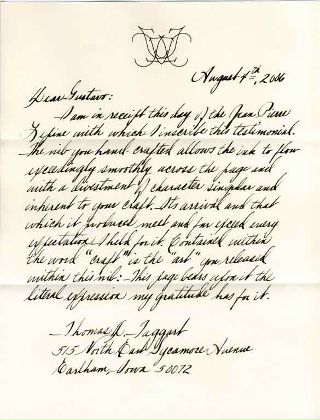 August 4th, 2006
Dear Gustavo:
I am in receipt this day of the Jean Pierre
Lépine with which I inscribe this testimonial.
The nib you hand crafted allows the ink to flow
exceedingly smoothly across the page and
with a divestment of character singular and
inherent to your craft. Its arrival and that
which it produces meet and far exceed every
expectation I held for it. Contained within
the word "craft" is the "art" you released
within this nib: This page bears upon it the
literal expression my gratitude has for it.
—Thomas A. Taggart
515 North East Sycamore Avenue
Earlham, Iowa 50072